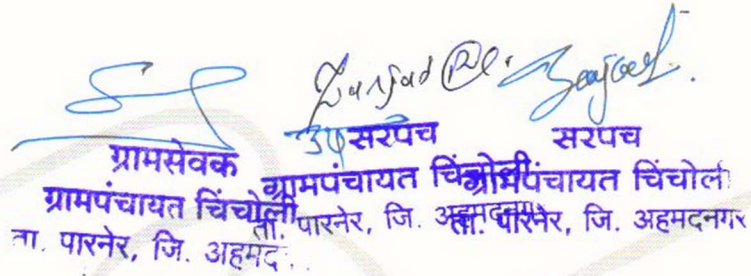 ग्रामसेवक
ग्रामपंचायत चिंचोली
ता. पारनेर, जि. अहमद
उप सरपंच
ग्रामपंचायत चिंचोली
ता. पारनेर, जि. अहमदनगर
सरपंच
ग्रामपंचायत चिंचोली
ता. पारनेर, जि. अहमदनगर